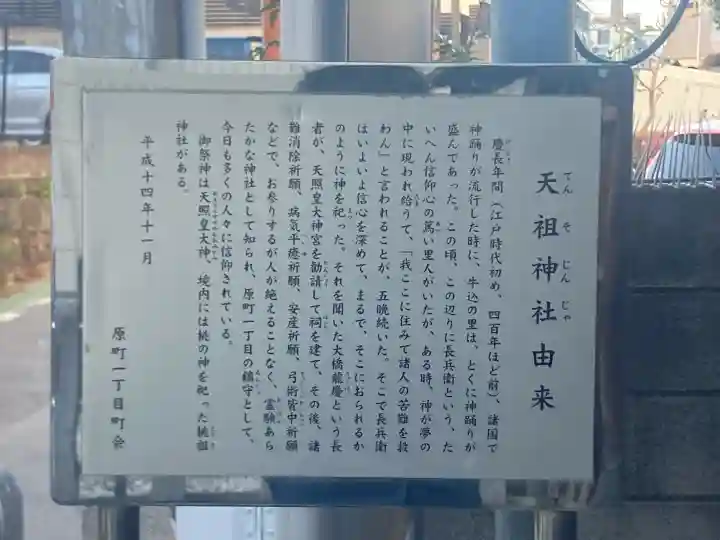 天祖神社由来
てんそじんじゃ
慶長年間(江戸時代初め、四百年ほど前)、諸国で
神踊りが流行した時に、牛込の里は、とくに神踊りが
盛んであった。この頃、この辺りに長兵衛という、た
いへん信仰心の篤い里人がいたが、ある時、神が夢の
中に現われ給うて、「我ここに住みて諸人の苦難を救
わん」と言われることが、五晩続いた。そこで長兵衛
はいよいよ信心を深めて、まるで、そこにおられるか
のように神を祀った。それを聞いた大橋龍慶という長
者が、天照皇大神宮を勧請して祠を建て、その後、諸
難消除祈願、病気平癒祈願、安産祈願、弓術皆中祈願
などで、お参りするが人が絶えることなく、霊験あら
たかな神社として知られ、原町一丁目の鎮守として、
今日も多くの人々に信仰されている。
御祭神は天照皇大神、境内には桃の神を祀った桃祖
神社がある。
平成十四年十一月
原町一丁目町会